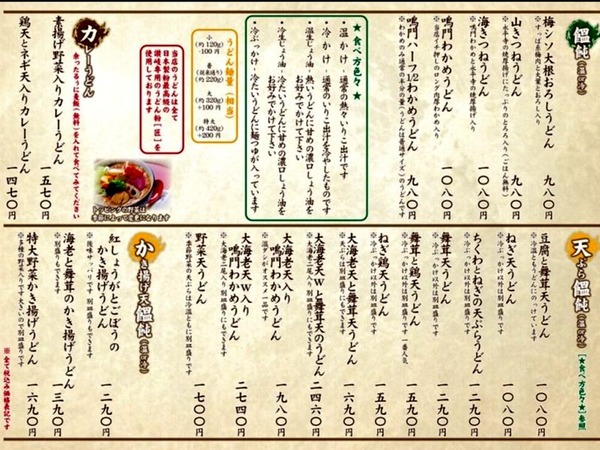 饂飩(温or冷)
梅シソ大根おろしうどん 九八〇円
山きつねうどん 九八〇円
海きつねうどん 一〇八〇円
鳴門わかめうどん 一〇八〇円
鳴門ハーフ1/2わかめうどん 九八〇円
★食べ方色々★
・温かけ-通常の熱々いりこ出汁です
・冷かけ-通常のいりこ出汁を冷やしたものです
・温生じょう油-熱いうどんに甘めの濃口しょう油を
お好みでかけて下さい
・冷生じょう油-冷たいうどんに甘めの濃口しょう油を
お好みでかけて下さい
・冷ぶっかけ-冷たいうどんに麺つゆが入っています
うどん麺量(相当)
小
(約120g)
-100円
(約220g)
大
(約320g)
+100円
特大
(約420g)
+200円
当店のうどんは全て
日本製粉最高級の
讃岐専用のうどん粉【匠】を
使用しております
トッピングの野菜は
季節によって変更になります
カレーうどん
余ったうるうに麦飯(無料)を入れて食べてみてください
素揚げ野菜入りカレーうどん 一五七〇円
鶏天とネギ天入りカレーうどん 一四七〇円
天ぷら饂飩(温or冷)
【★食べ方色々★】参照
豆腐と舞茸天うどん 一〇八〇円
ねぎ天うどん 一〇八〇円
ちくわとねぎの天ぷらうどん 一二九〇円
舞茸天うどん 一二九〇円
舞茸と鶏天うどん 一五九〇円
ねぎと鶏天うどん 一五九〇円
大海老天と舞茸天うどん 一六九〇円
大海老天Wと舞茸天のうどん 二四六〇円
大海老天入り
鳴門わかめうどん 一九八〇円
大海老天W入り
鳴門わかめうどん 二七四〇円
野菜天うどん 一七〇〇円
かき揚げ天饂飩(温or冷)
紅しょうがとごぼうの
かき揚げうどん 一二九〇円
※後味サッパリです 別皿盛りもできます
海老と舞茸のかき揚げうどん 一三九〇円
※別皿盛りもできます
特大野菜かき揚げうどん 一六九〇円
※多種の野菜入りです大きいので別皿盛りです
※全て税込み価格表記です